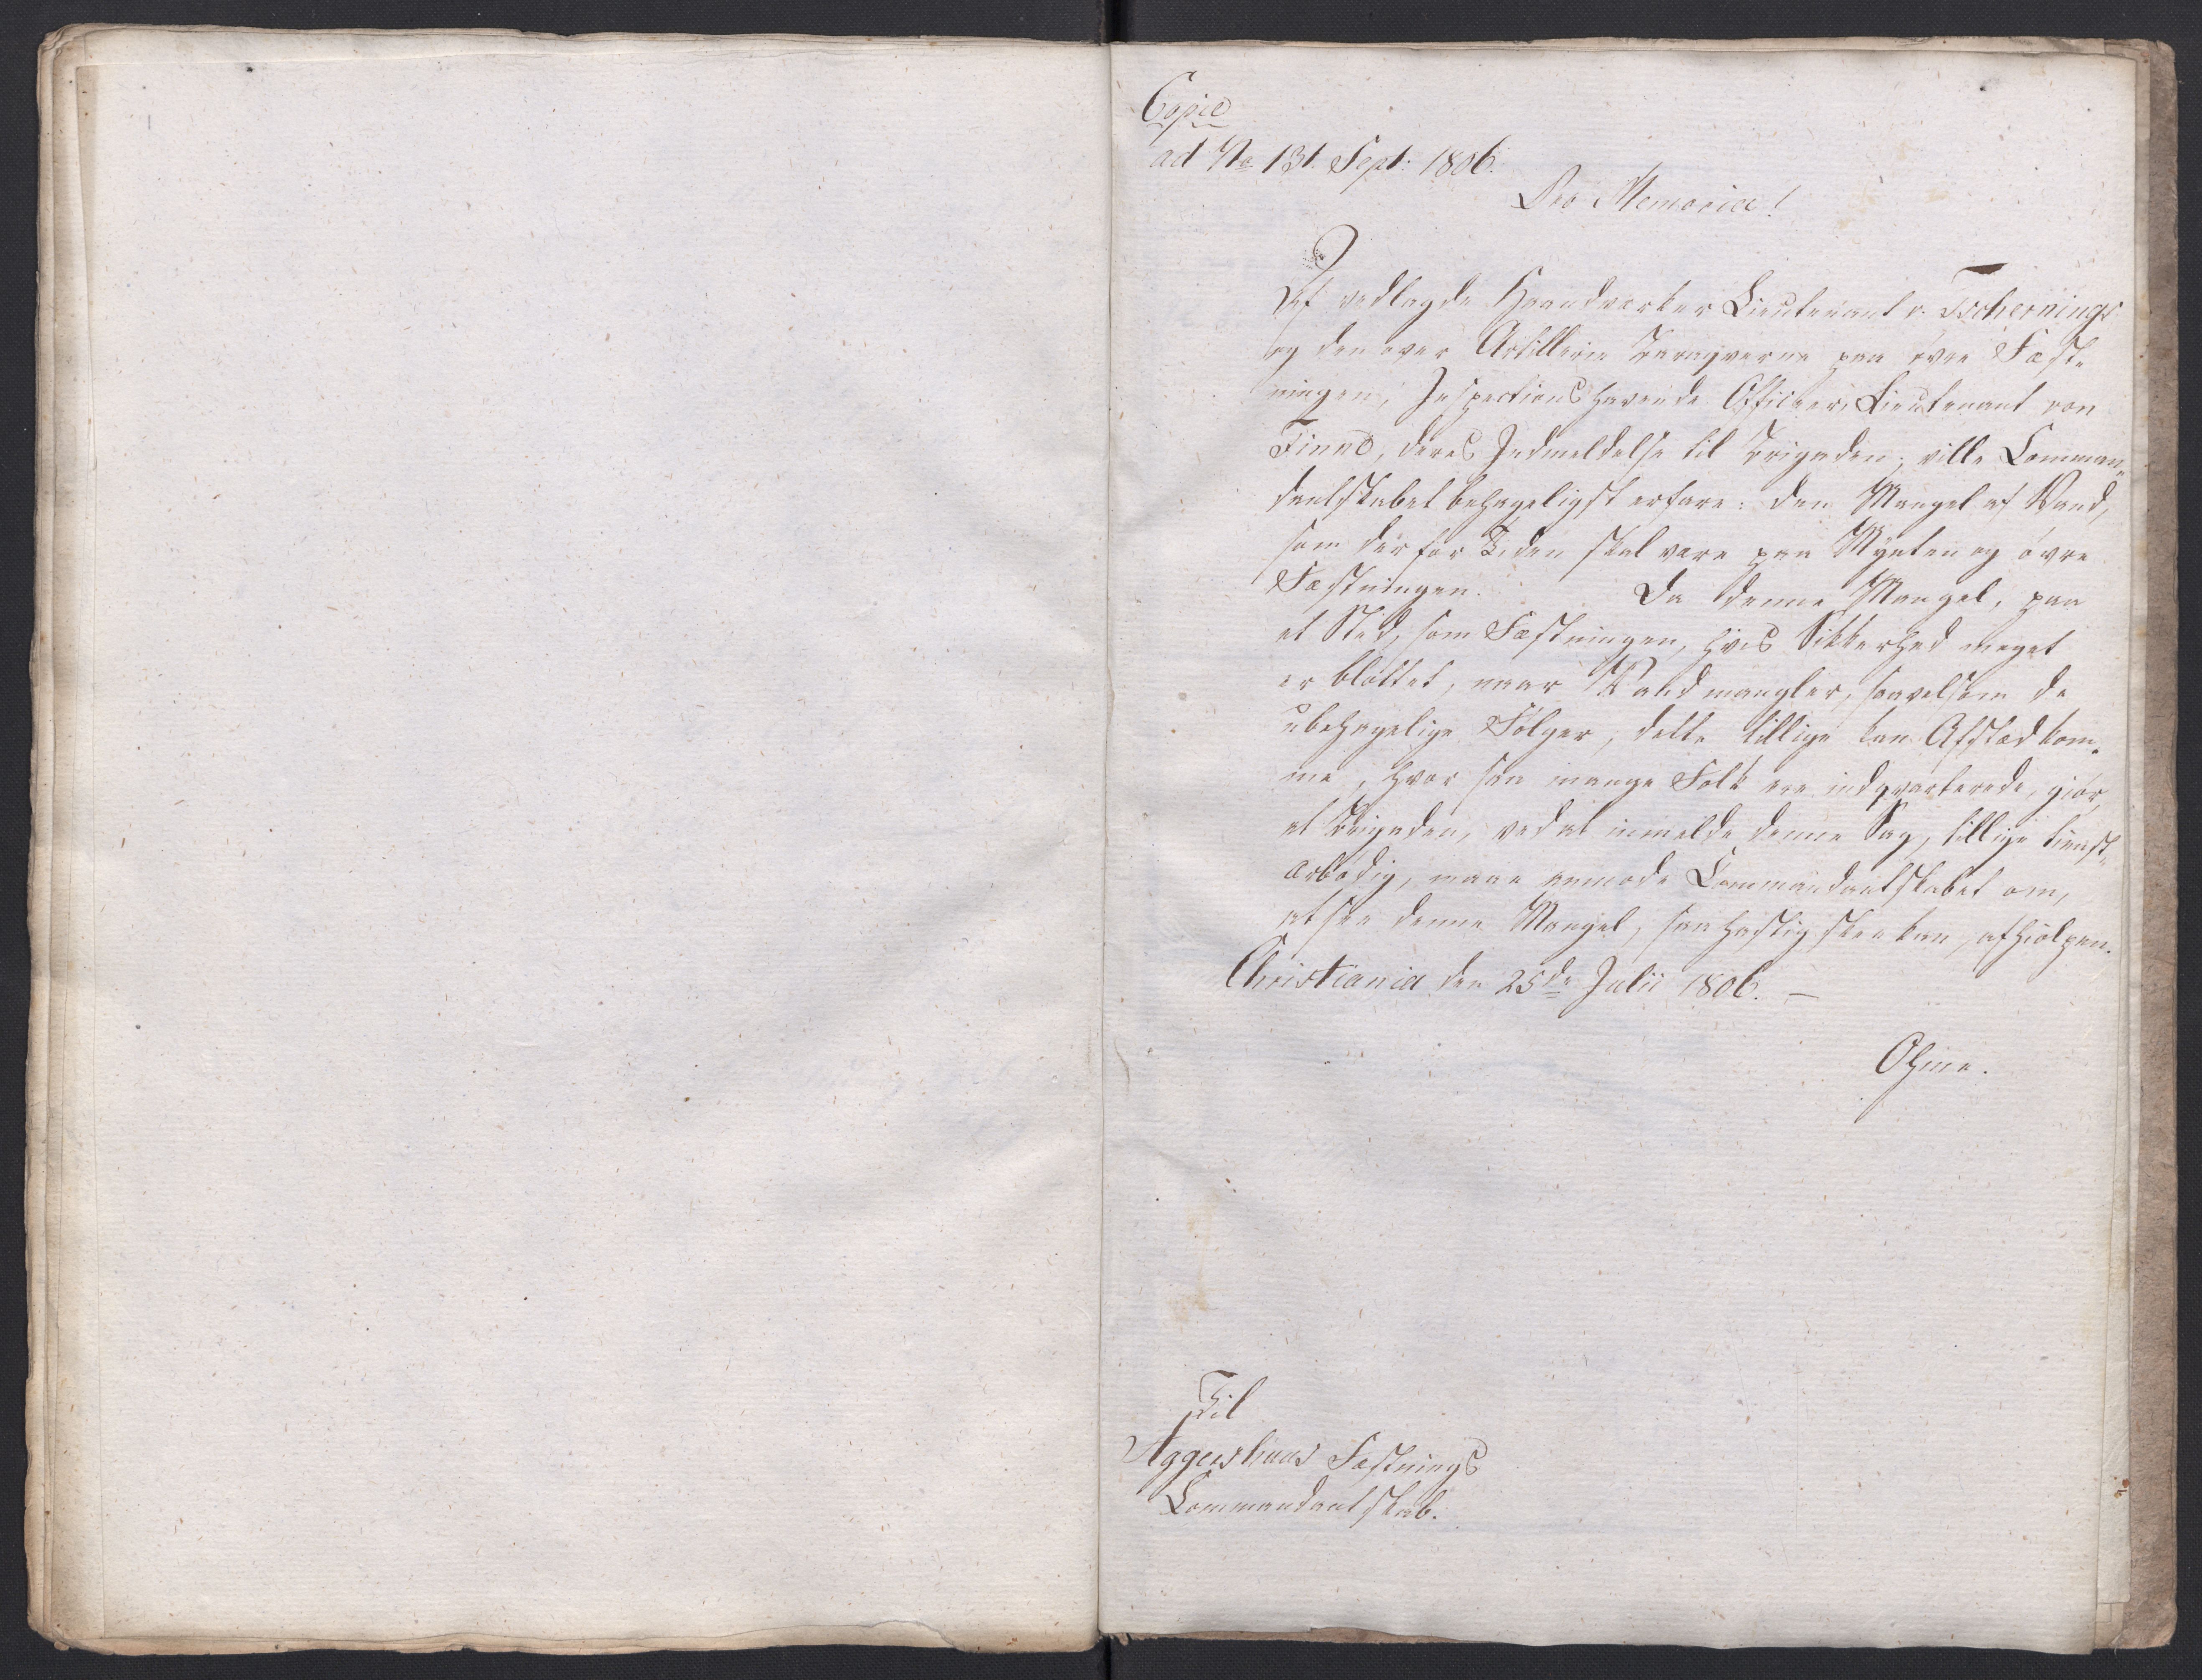 Copie
ad No 131. Sept: 1806.
Pro Memoria!
Af vedlagde Haandværker Lieutenant v. Tschernings
og den over Artillerie Tøirugverne paa øvre Fæst-
ningen, Inspections havende Officeer, Lieutenant von
Finne, deres Indmeldelse til Brigaden; ville Comman-
dantskabet behageligst erfare: den Mangel af Vand,
som der for Tiden skal være paa Mynten og øvre
Fæstningen. Da denne Mangel, paa
et Sted, som Fæstningen, hvis Sikkerhed meget
er blottet, naar Vand mangler, saavelsom de
ubehagelige Følger, dette tillige kan Afstædkom-
me, hvor saa mange Folk ere indqvarterede, giør,
at Brigaden, ved at inmelde denne Sag, tillige tienst-
ærbødig, maae anmode Commandantskabet om,
at see denne Mangel, saa hastig skee kan, afhiolpen.
Christiania den 25de Julii 1806. —
Ohme.
Til
Aggershuus Fæstnings
Commandantskab.